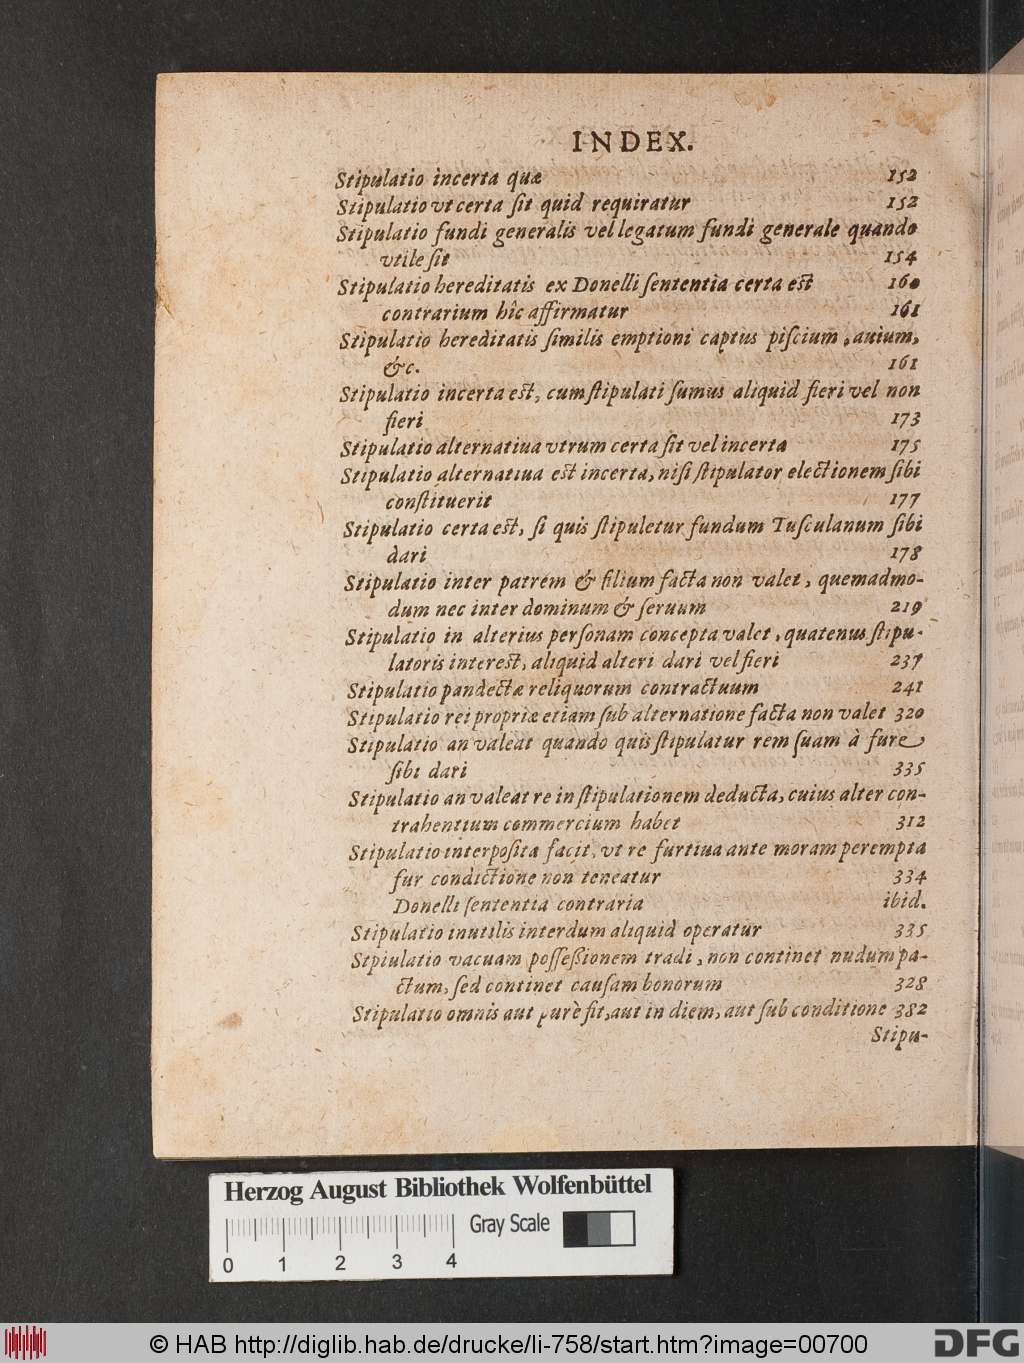 INDEX.
Stipulatio incerta quæ 152
Stipulatio vt certa ſit quid requiratur 152
Stipulatio fundi generalis vel legatum fundi generale quando
vtile ſit 154
Stipulatio hereditatis ex Donelli ſententia certa est 160
contrarium hîc affirmatur 161
Stipulatio hereditatis ſimilis emptioni captus piſcium, auium,
&c. 161
Stipulatio incerta est, cum ſtipulati ſumus aliquid fieri vel non
fieri 173
Stipulatio alternatiua vtrum certa ſit vel incerta 175
Stipulatio alternatiua est incerta, niſi ſtipulator electionem ſibi
conſtituerit 177
Stipulatio certa est, ſi quis ſtipuletur fundum Tuſculanum ſibi
dari 178
Stipulatio inter patrem & filium facta non valet, quemadmo-
dum nec inter dominum & ſeruum 219
Stipulatio in alterius perſonam concepta valet, quatenus ſtipu-
latoris interest, aliquid alteri dari vel fieri 237
Stipulatio pandectæ reliquorum contractuum 241
Stipulatio rei propriæ etiam ſub alternatione facta non valet 320
Stipulatio an valeat quando quis ſtipulatur rem ſuam à fure
ſibi dari 335
Stipulatio an valeat re in ſtipulationem deducta, cuius alter con-
trahentium commercium habet 312
Stipulatio interpoſita facit, vt re furtiua ante moram perempta
fur condictione non teneatur 334
Donelli ſententia contraria ibid.
Stipulatio inutilis interdum aliquid operatur 335
Stpiulatio vacuam poſſeßionem tradi, non continet nudum pa-
ctum, ſed continet cauſam bonorum 328
Stipulatio omnis aut purè fit, aut in diem, aut ſub conditione 382
Stipu-
Herzog August Bibliothek Wolfenbüttel
Gray Scale
0 1 2 3 4
© HAB http://diglib.hab.de/drucke/li-758/start.htm?image=00700
DFG